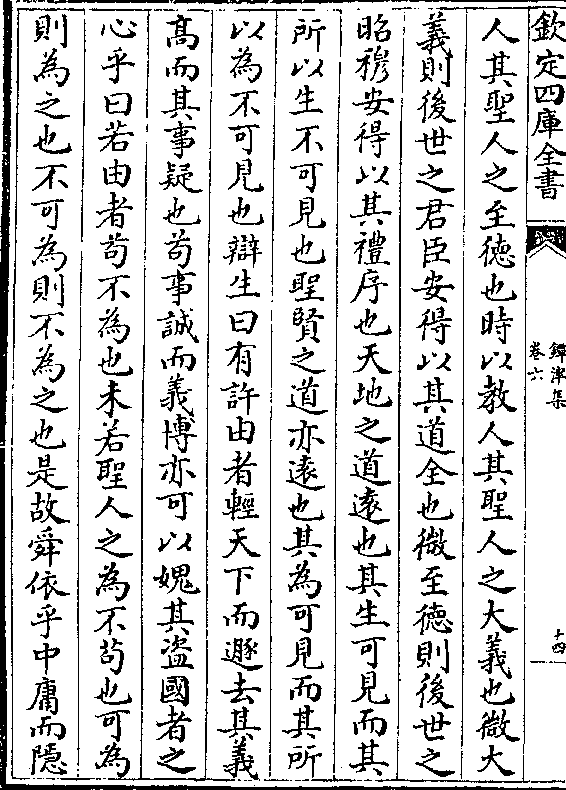 欽定四庫全書
鐔津集
卷六
十四
人其聖人之至德也時以教人其聖人之大義也微大
義則後世之君臣安得以其道全也微至德則後世之
昭穆安得以其禮序也天地之道遠也其生可見而其
所以生不可見也聖賢之道亦遠也其為可見而其所
以為不可見也辯生曰有許由者輕天下而遯去其義
髙而其事疑也茍事誠而義博亦可以媿其盗國者之
心乎曰若由者茍不為也未若聖人之為不茍也可為
則為之也不可為則不為之也是故舜依乎中庸而隱